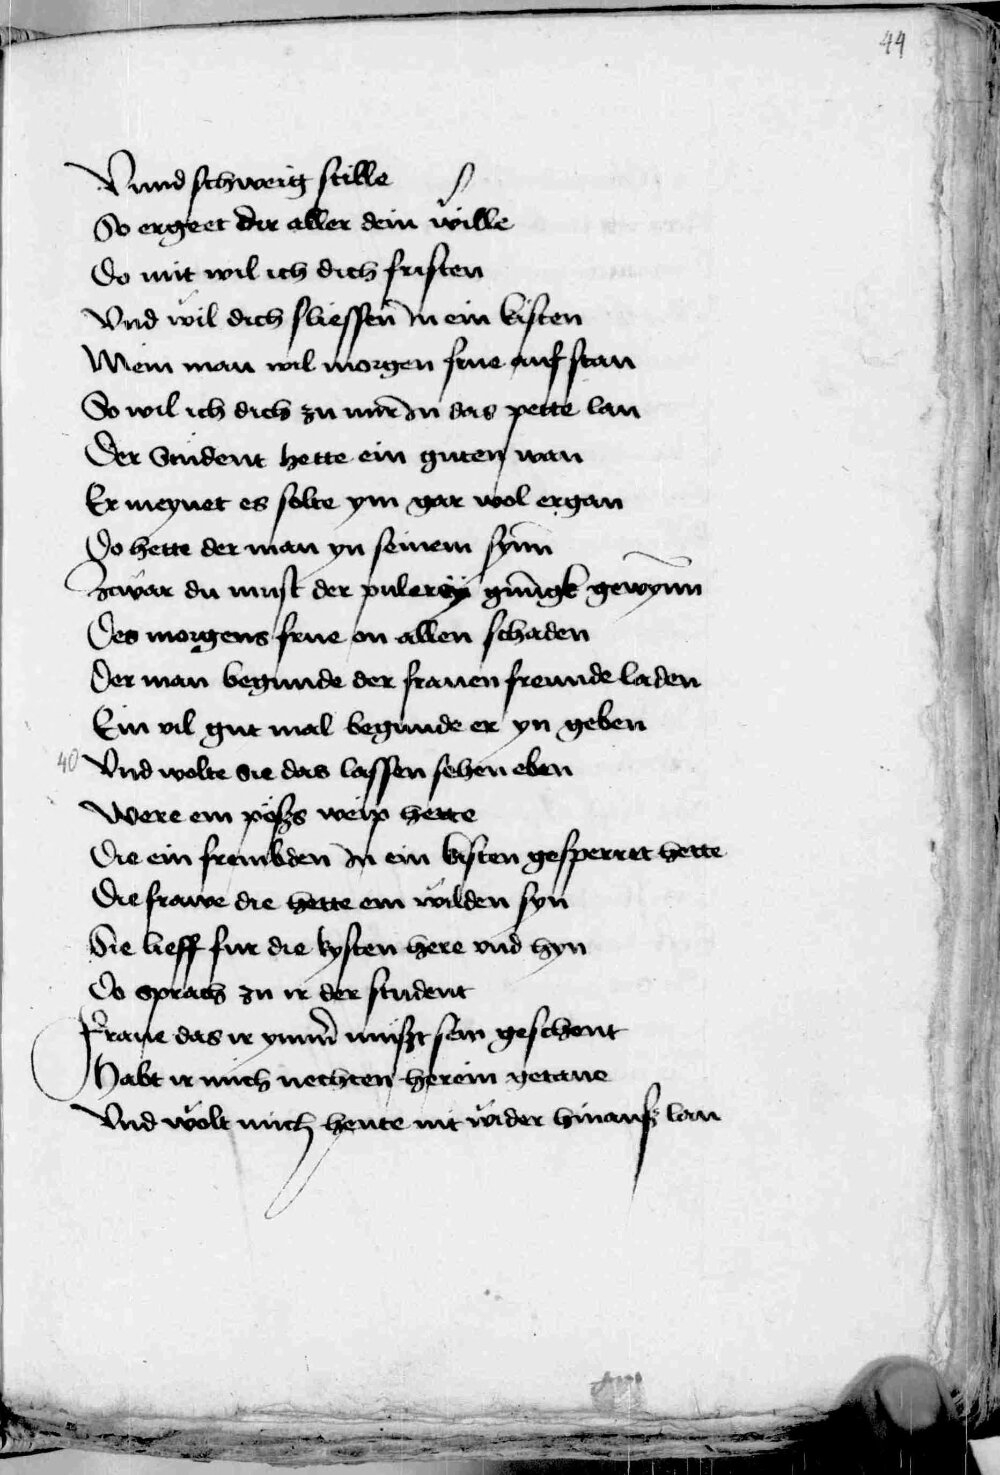 44
Vnnd schweig stille
So ergeet dir aller dein wille
Do mit wil ich dich fristen
Vnd wil dich sliessen In ein kisten
Mein man wil morgen frue auf stan
So wil ich dich zu mir In das pette lan
Der Student hette ein guten wan
Er meynet es solte ym gar wol ergan
Do hette der man yn seinem synn
Zwar du must der pulerey gnungk gewynnn
Des morgens frue on allen schaden
Der man begunde der frauen freunde laden
Ein vil gut mal begunde er yn geben
40 Vnd wolte sie das lassen sehen eben
Were ein pößs weip hette
Die ein frembden In ein kisten gesperret hette
Die frawe die hette ein wilden syn
Sie lieff fur die kysten here vnd hyn
Do sprach zu ir der student
Fraue das ir ymmer mußt sein geschent
Habt ir mich nechten herein getane
Vnd wolt mich heute nit wider hinauß lan